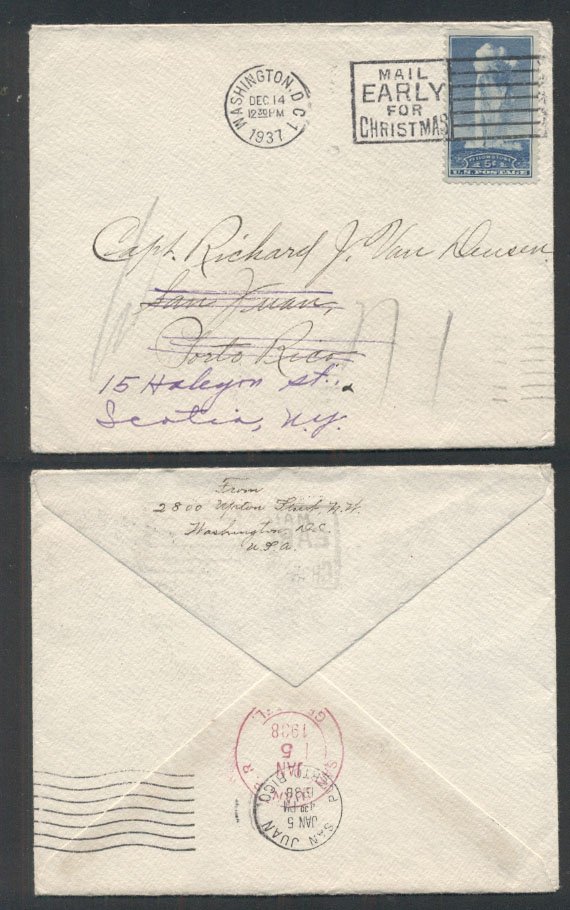 WASHINGTON, D.C. 1
DEC 14
12 30 PM
1937
MAIL
EARLY
FOR
CHRISTMAS
YELLOWSTONE
5¢
U.S. POSTAGE
Capt. Richard J. Van Deusen
San Juan,
Porto Rico
15 Halcyon St.,
Scotia, N.Y.
From
2800 Upton Street N.W.
Washington D.C.
U.S.A.
JAN
5
1938
SAN JUAN
JAN 5
4 30 PM
1938
PUERTO RICO